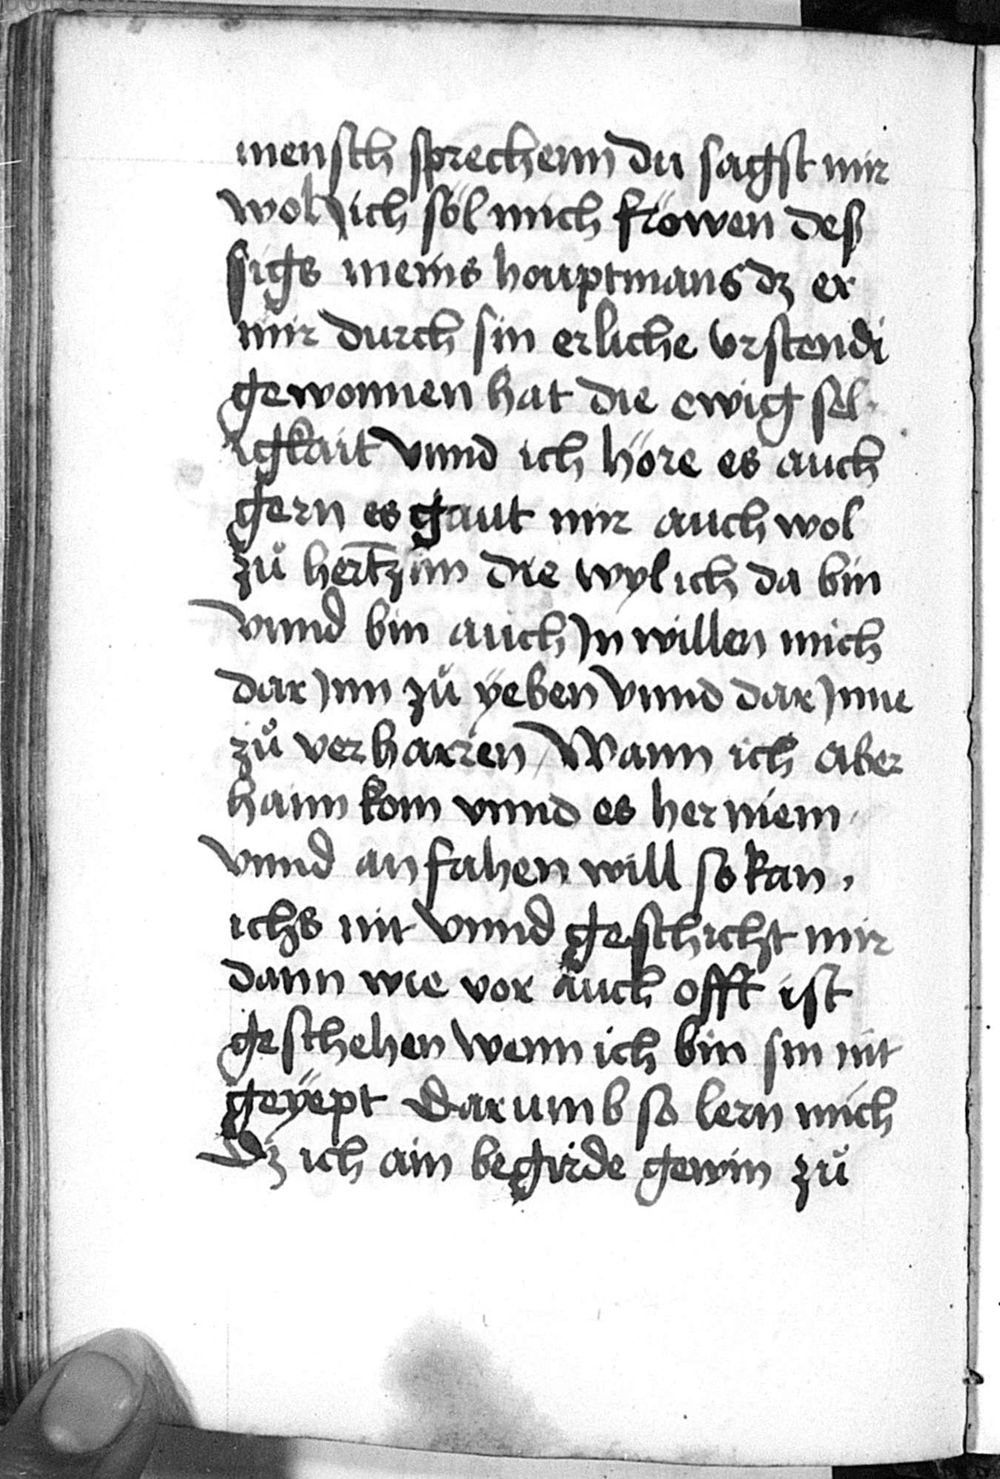 mensch sprechenn du sagst mir
wol ich söl mich fröwen deß
sigs meins houptmans dz er
mir durch sin erliche vrstendi
gewonnen hat die ewig sel-
igkait vnnd ich höre es auch
gern es gaut mir auch wol
zů hertzim die wyl ich da bin
vnnd bin auch Jn willen mich
dar Jnn zů ÿeben vnnd dar Jnne
zů verharren / Wann ich aber
hann kom vnnd es her niem
vnnd an fahen will so kan
ichs nit vnnd geschicht mir
dann wie vor auch offt ist
geschehen wenn ich bin sin nit
geÿept Darumb so lern mich
Dz ich ain begirde gewin zů